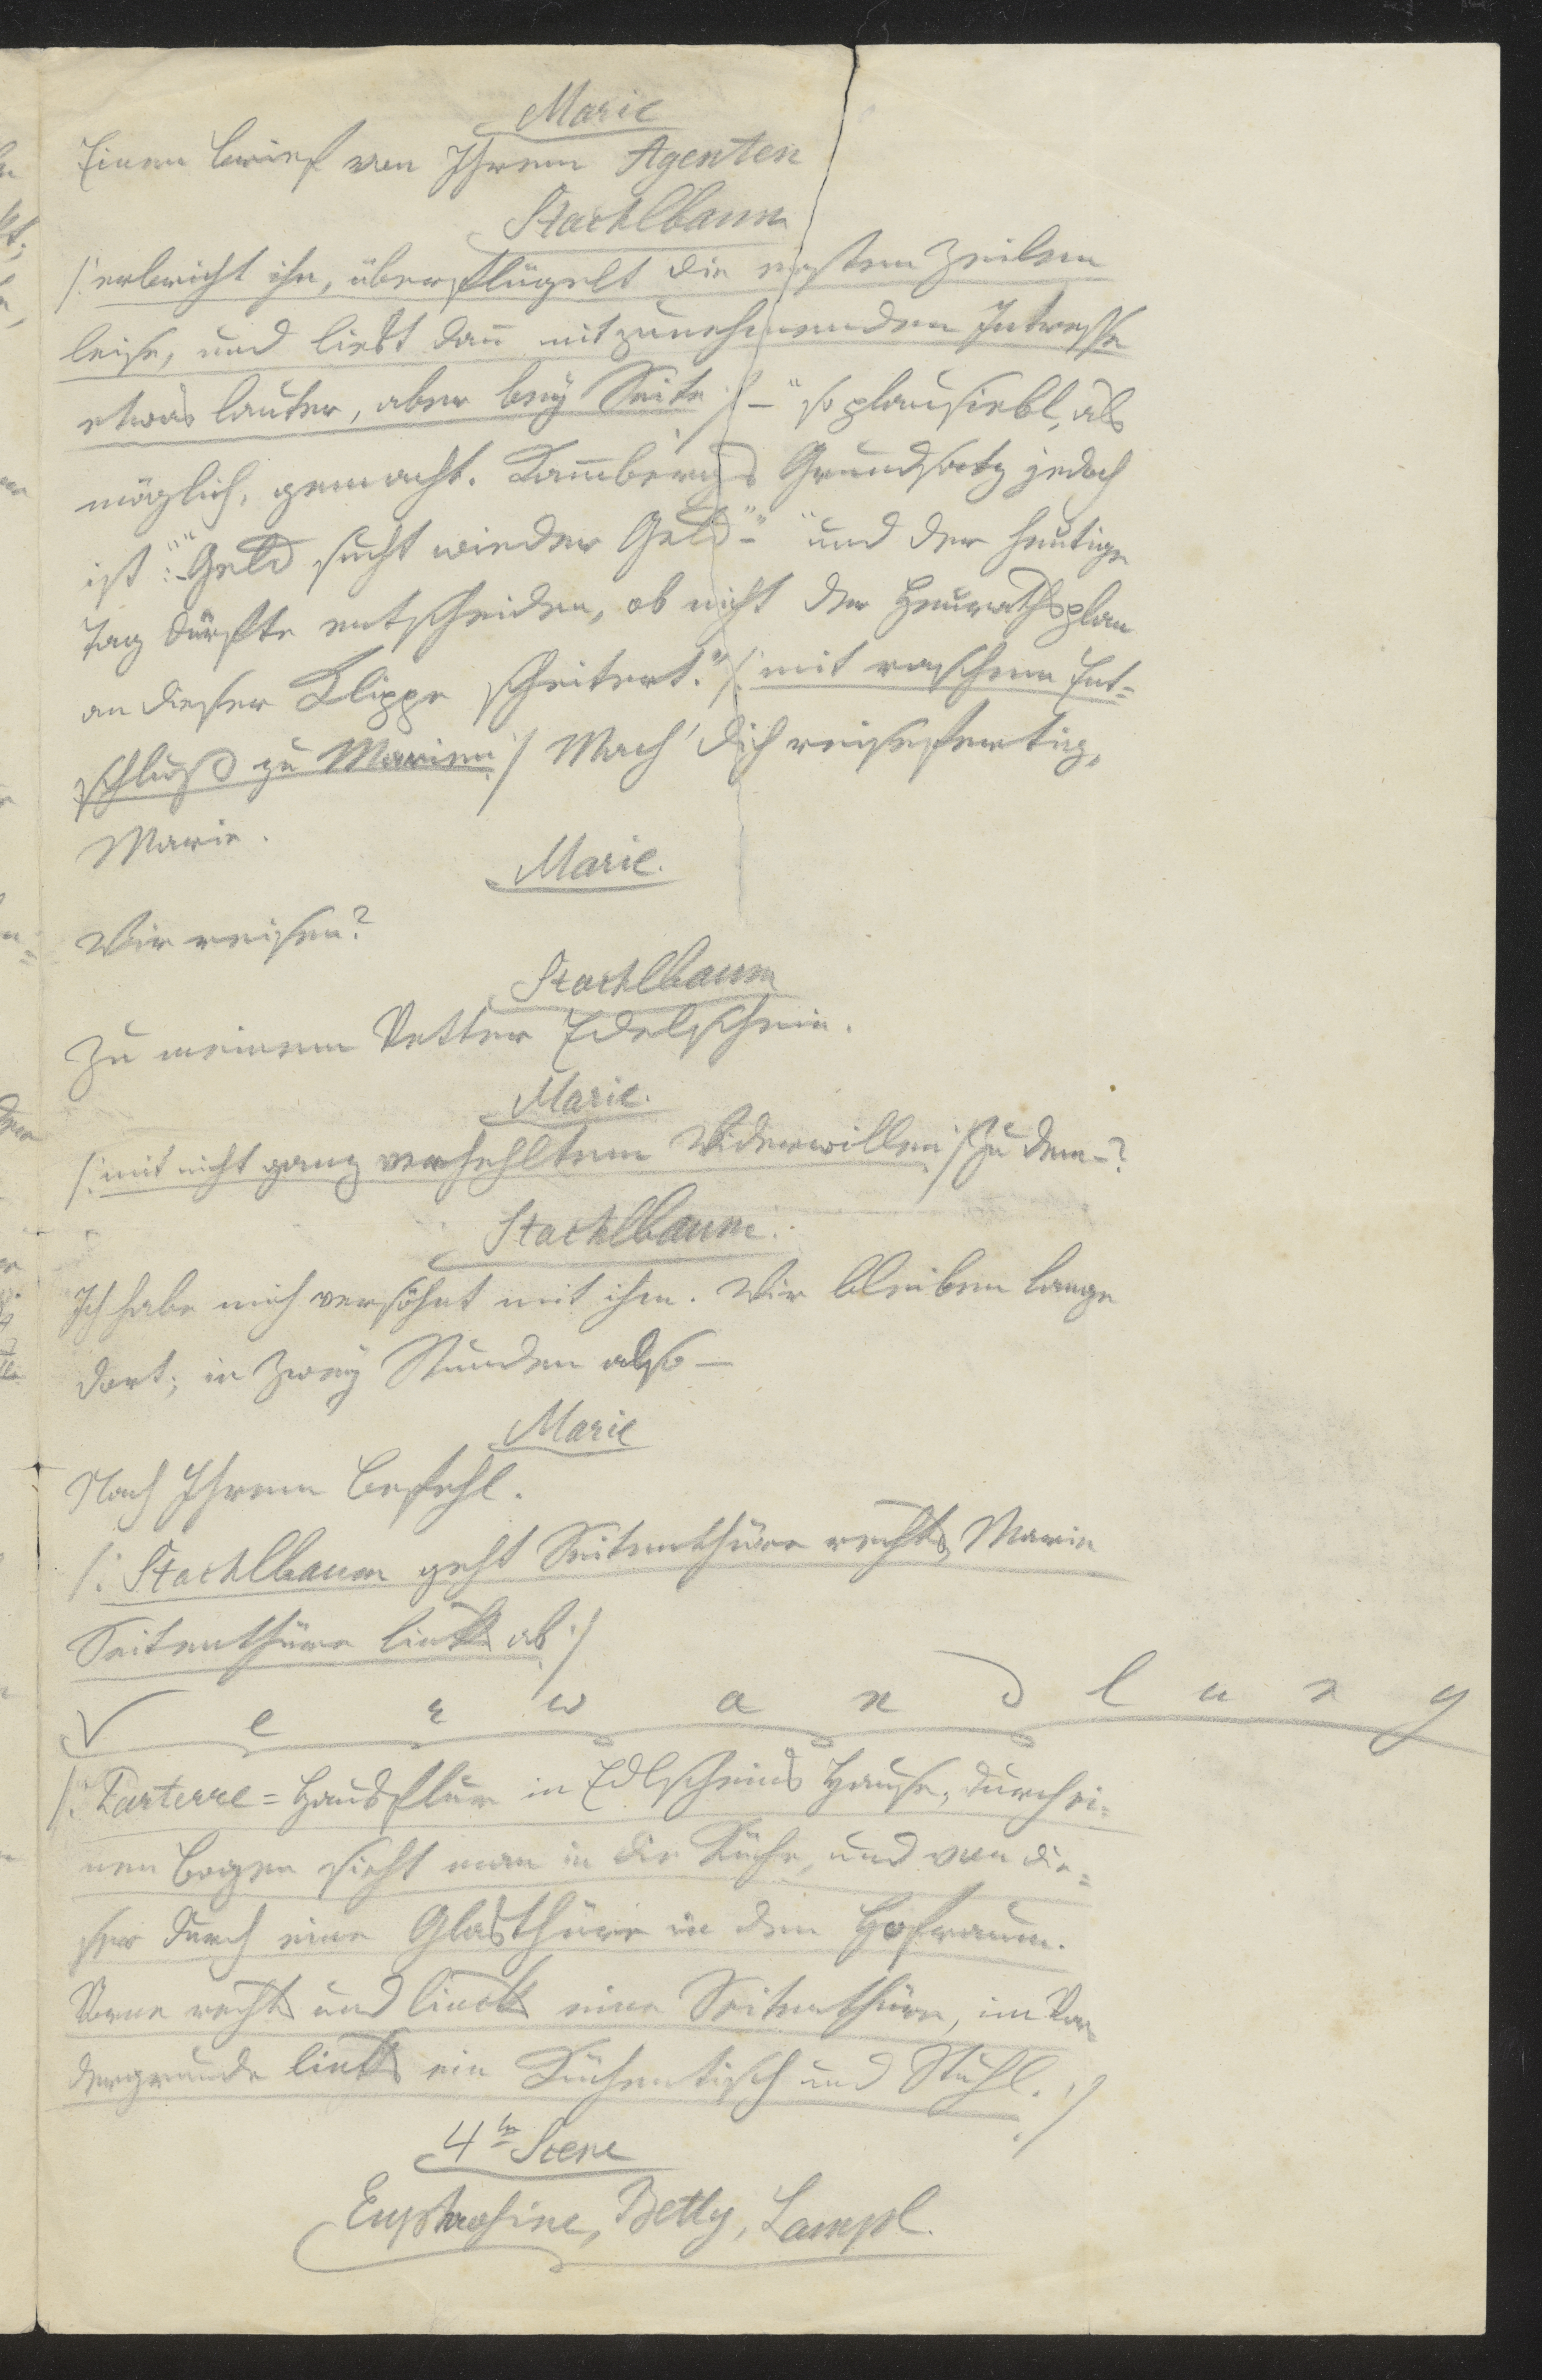 Marie
Einen Brief von Ihrem Agenten
Stachlbaum
/: erbricht ihn, überflügelt die ersten Zeilen
leise, und liest dañ mit zunehmenden Intresse
etwas lauter, aber bey Seite :/ – "so plausiebl, als
möglich, gemacht. Kam̄bergs Grundsatz jedoch
ist: ""Geld sucht wieder Geld"" – "und der heutige
Tag dürfte entscheiden, ob nicht der Heurathsplan
an dieser Klippe scheitert." /: mit raschem Ent=
schluß zu Marien :/ Mach' dich reisefertig,
Marie.
Marie.
Wir reisen?
Stachlbaum
Zu meinem Vetter Edelschein.
Marie.
/: mit nicht ganz verhehltem Widerwillen :/ Zu dem –?
Stachlbaum.
Ich habe mich versöhnt mit ihm. Wir bleiben lange
dort; in zwey Stunden also –
Marie
Nach Ihrem Befehl.
/: Stachlbaum geht Seitenthüre rechts, Marie
Seitenthüre links ab :/
Verwandlung
/: Parterre=Hausflur in Edlscheins Hause, durch ei=
nen Bogen sieht man in die Küche, und von die=
ser durch eine Glasthüre in den Hofraum.
Vorne rechts und links eine Seitenthüre, im Vor=
dergrunde links ein Küchentisch und Stuhl. :/
4te Scene
Euphrosine, Betty, Lampl.